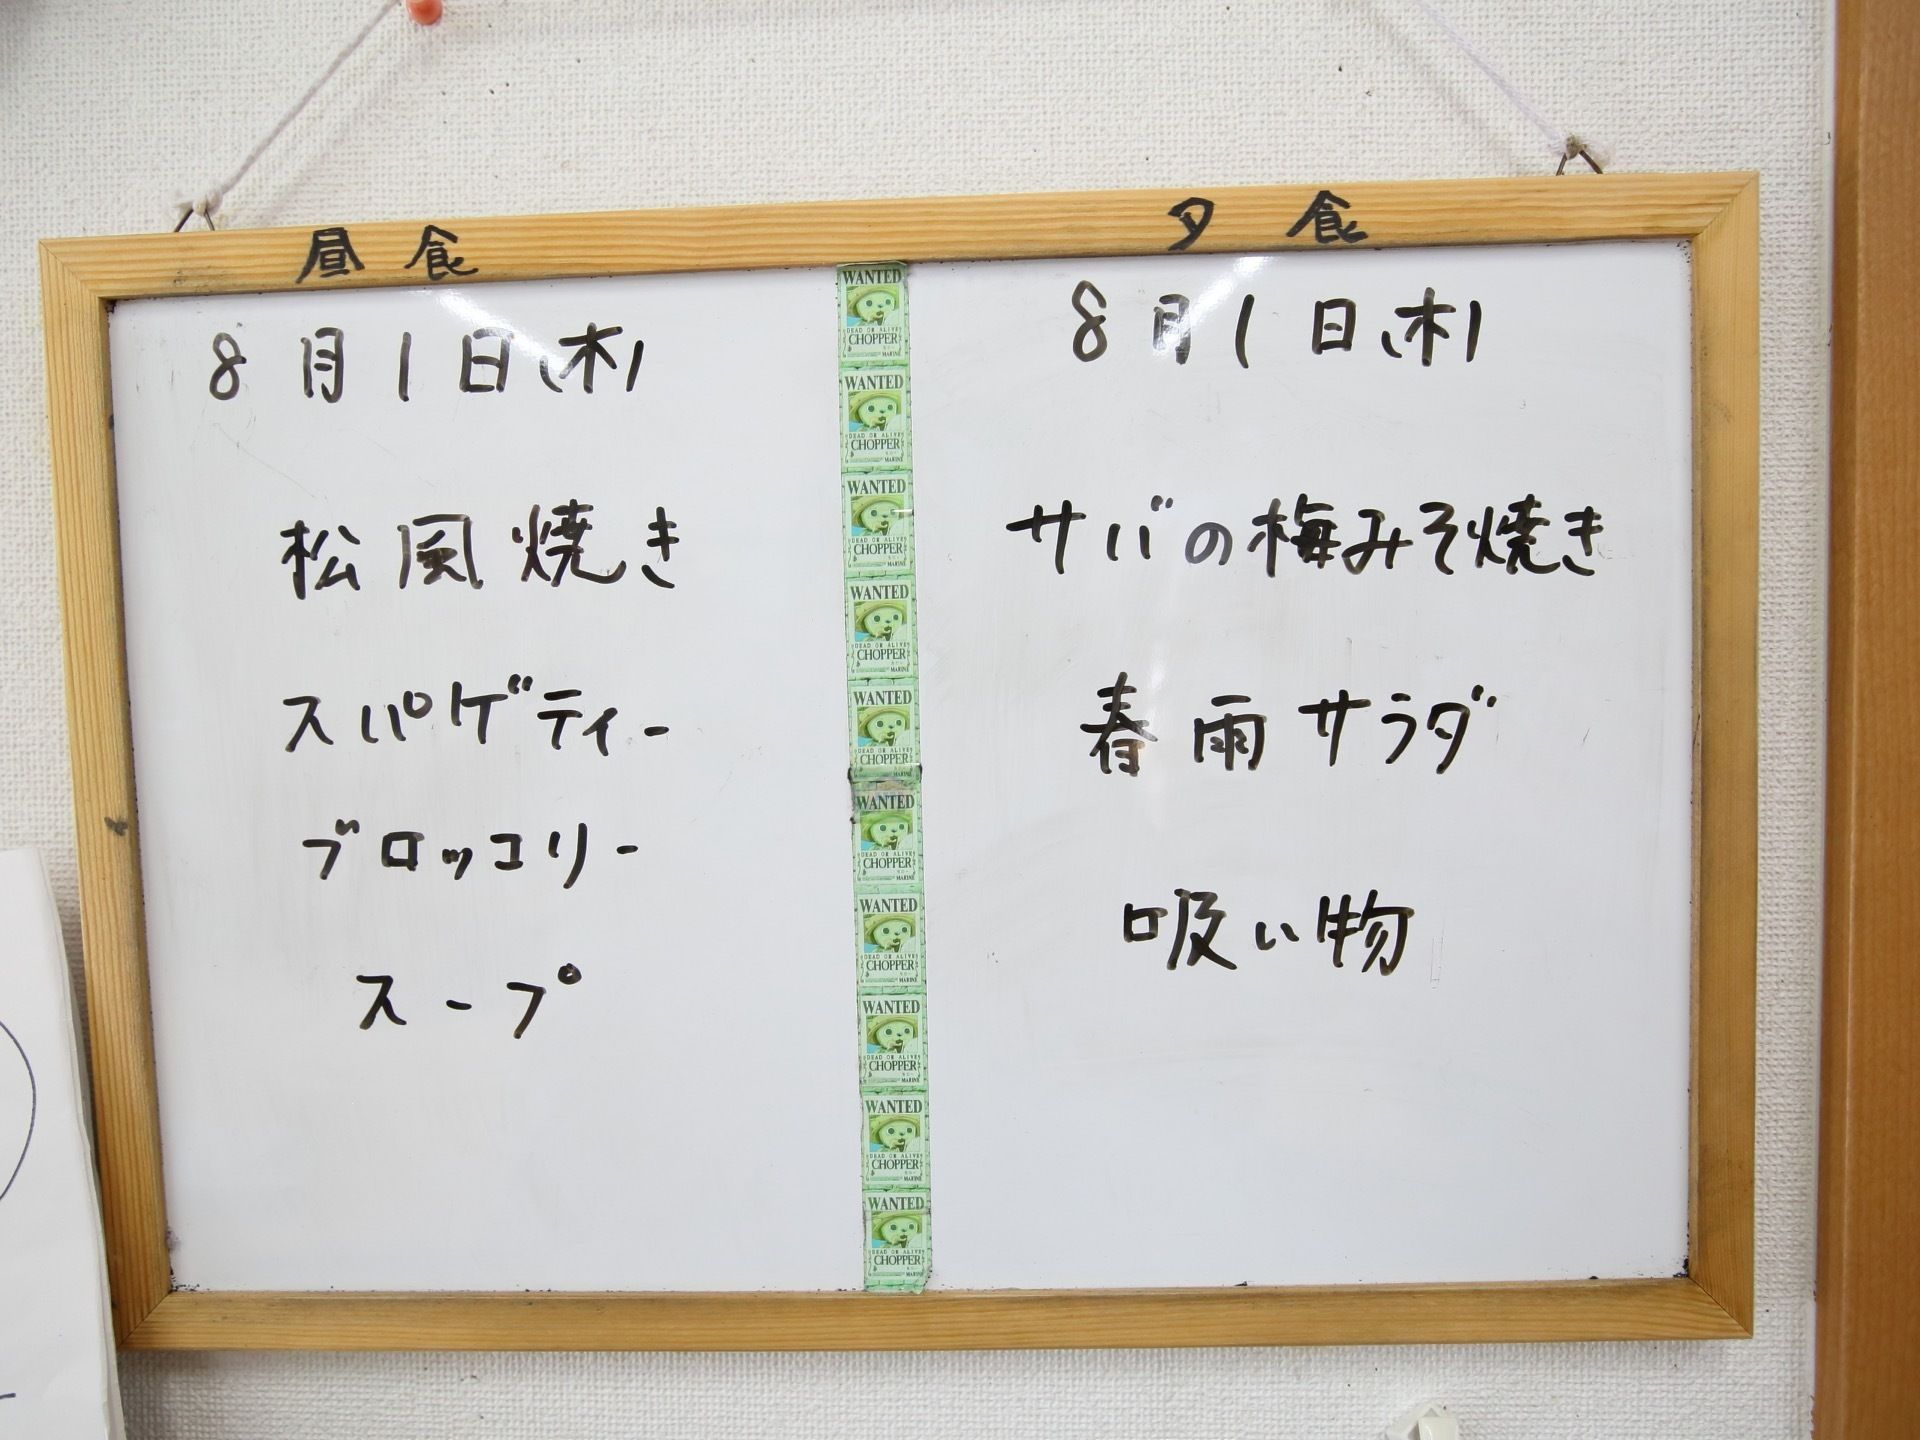 昼食
8月1日(木)
松風焼き
スパゲティー
ブロッコリー
スープ
夕食
8月1日(木)
サバの梅みそ焼き
春雨サラダ
吸い物
WANTED
DEAD OR ALIVE
CHOPPER
MARINE
WANTED
DEAD OR ALIVE
CHOPPER
MARINE
WANTED
DEAD OR ALIVE
CHOPPER
MARINE
WANTED
DEAD OR ALIVE
CHOPPER
MARINE
WANTED
DEAD OR ALIVE
CHOPPER
WANTED
DEAD OR ALIVE
CHOPPER
MARINE
WANTED
DEAD OR ALIVE
CHOPPER
MARINE
WANTED
DEAD OR ALIVE
CHOPPER
MARINE
WANTED
DEAD OR ALIVE
CHOPPER
MARINE
WANTED
DEAD OR ALIVE
CHOPPER
MARINE